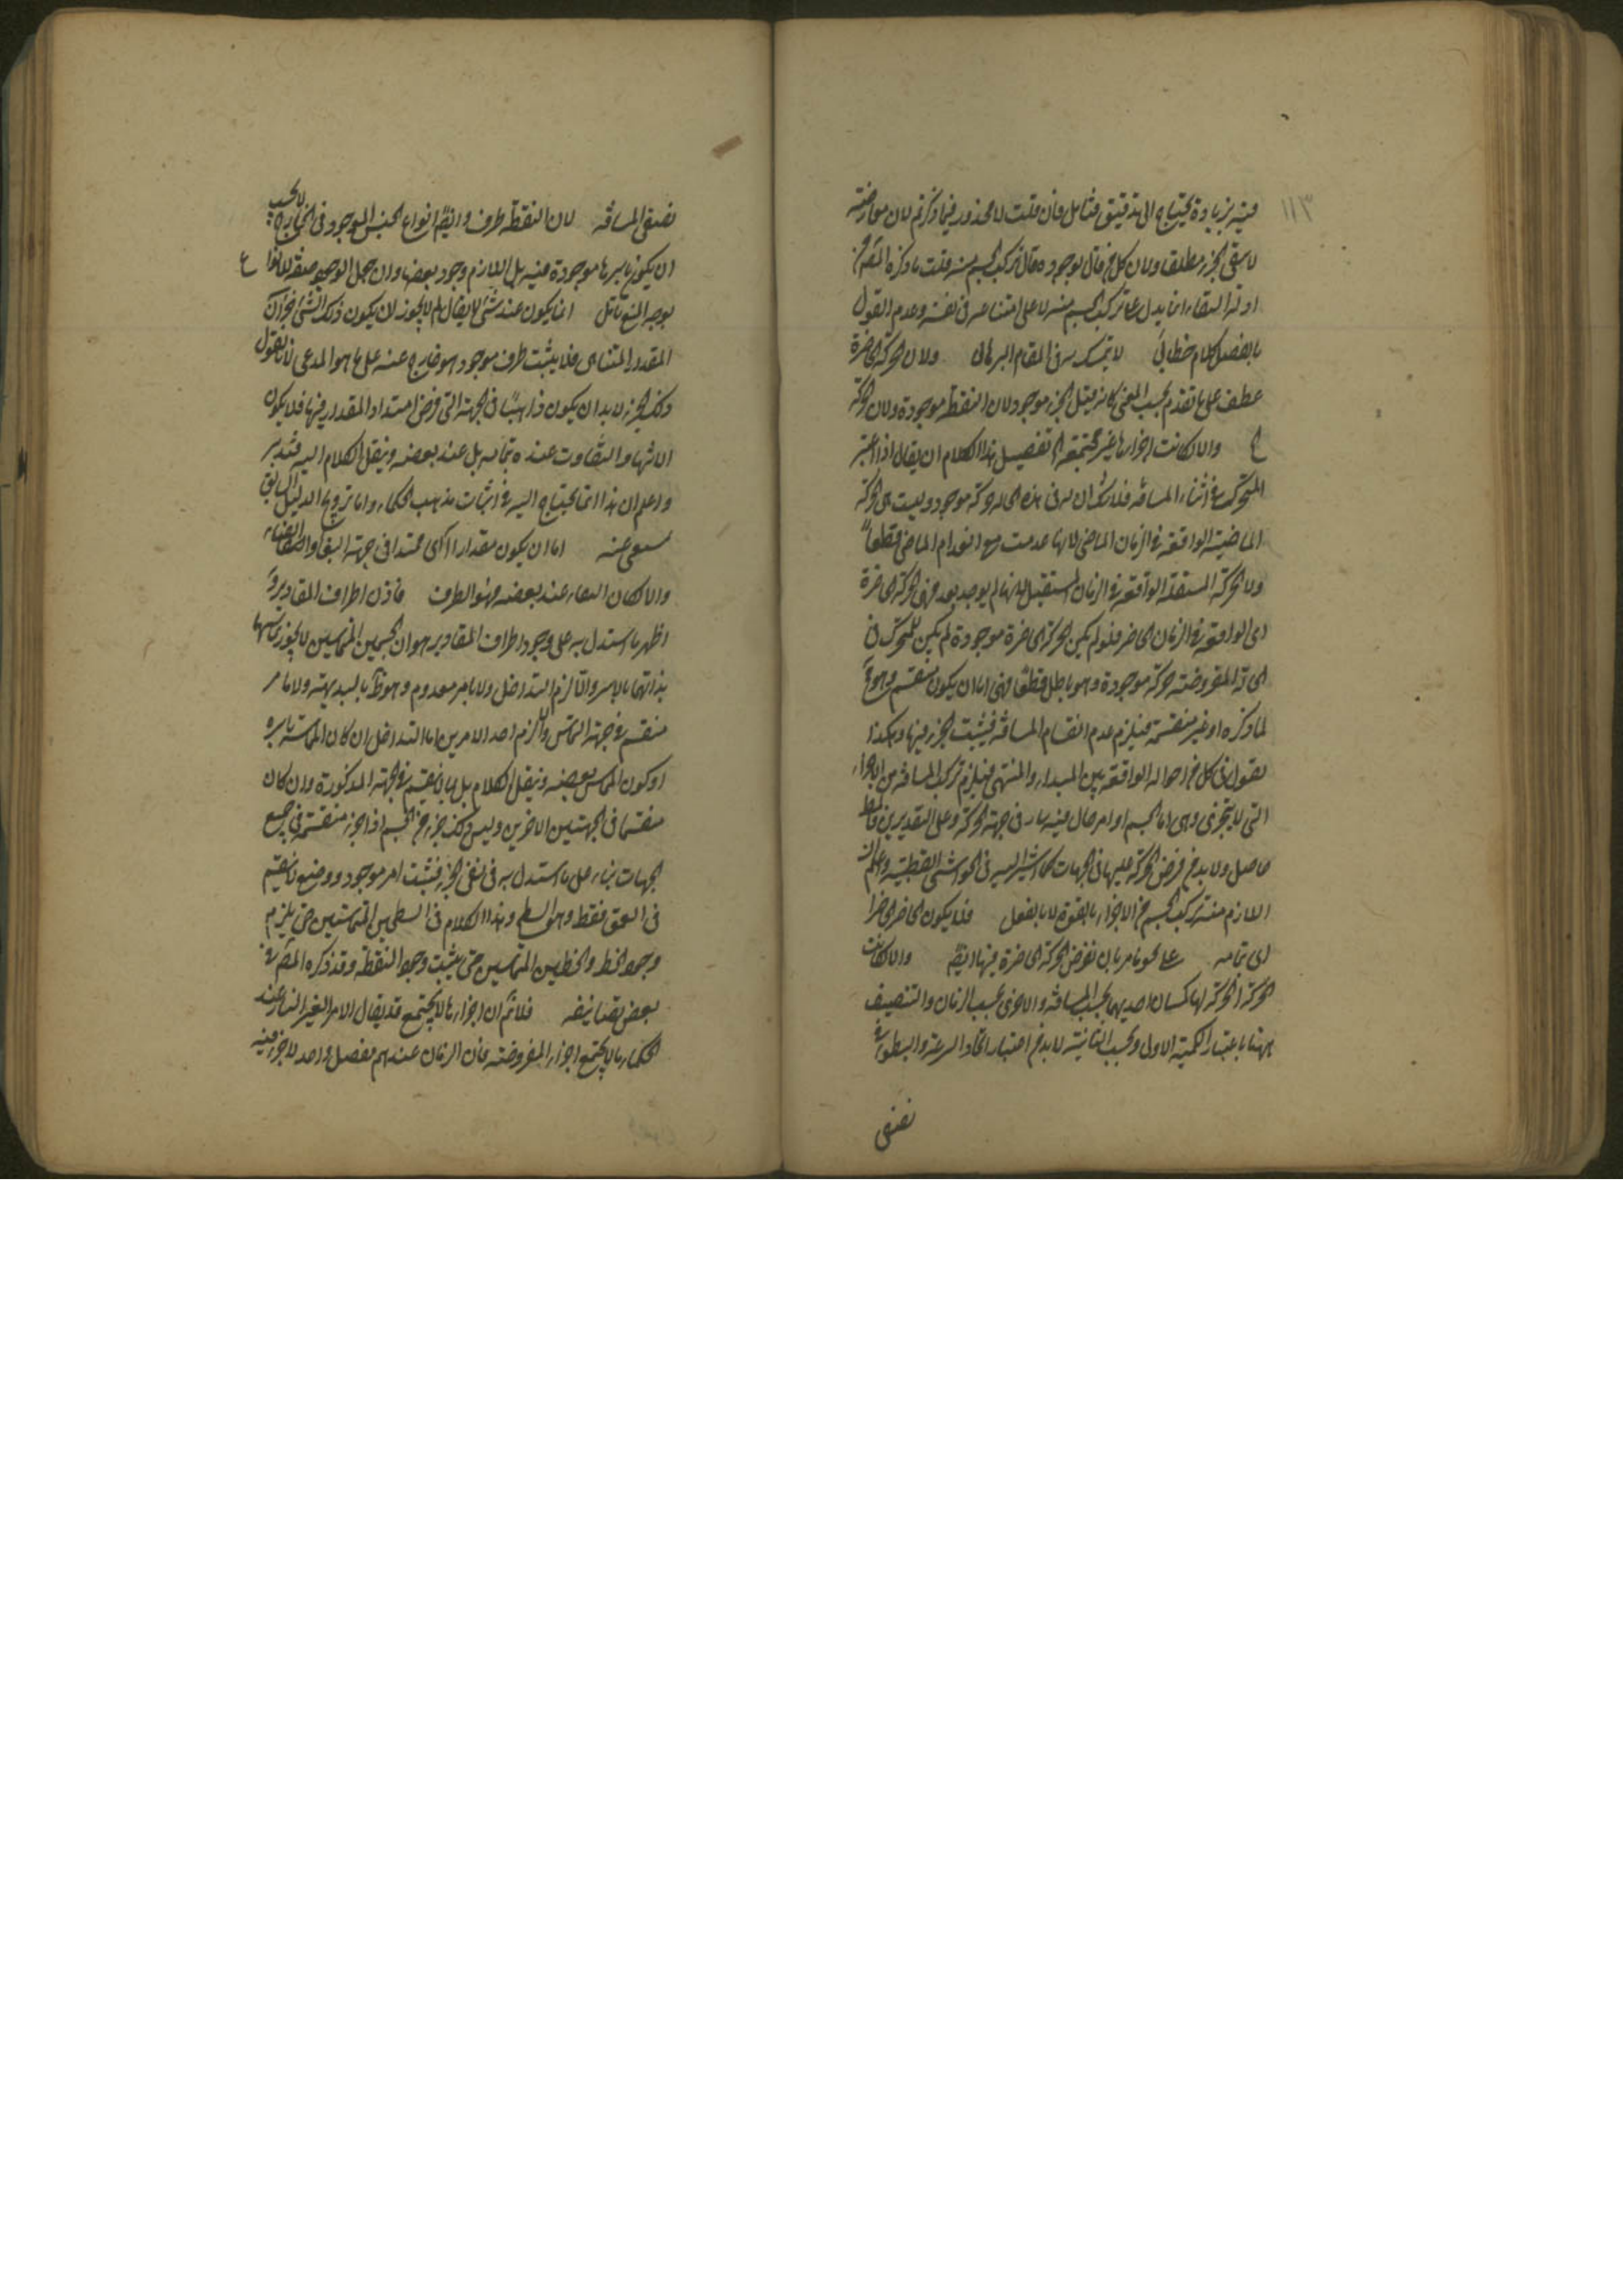 ١١٣
فيه زيادة يحتاج الى تدقيق فتأمل فان قلت لا محذور فيما ذكرتم لان معارضته
مطلقا ولان كل من قال بوجوده قال بتركب الجسم منه قلت ما ذكره المص من
ادلة انما يدل على تركب الجسم منه لا على امتناعه في نفسه وعدم القول
بالفصل كلام خطابي لا يتمسك به في المقام البرهاني ولان الحركة الحاضرة
عطف على ما تقدم بحسب المعنى كانه قيل الجزء موجود لان النقطة موجودة ولان الحركة
والا لكانت اجزاءها غير مجتمعة تفصيل هذا الكلام ان يقال اذا اعتبر
المتحرك في اثناء المسافة فلا شك ان له في هذه الحالة حركة موجودة وليست هي الحركة
الماضية الواقعة في الزمان الماضي لانها عدمت مع انعدام الماضي قطعا
ولا الحركة المستقبلة الواقعة في الزمان المستقبل لانها لم يوجد بعد فهي الحركة الحاضرة
اى الواقعة في الزمان الحاضر فلو لم يكن الحركة الحاضرة موجودة لم يكن للمتحرك في
الحالة المفروضة حركة موجودة وهو باطل قطعا فهي اما ان يكون منقسمة وهو
لما ذكره او غير منقسمة فيلزم عدم انقسام المسافة فيثبت الجزء فيها وهكذا
نقول في كل من احواله الواقعة بين المبداء والمنتهى فيلزم تركب المسافة من الاجزاء
التي لا يتجزى وهي اما الجسم او امر حال فيه سار في جهة الحركة وعلى التقديرين فالمط
حاصل ولا بد من فرض الحركة عليها في الجهات كما اشير اليه في الحواشي القطبية واعلم ان
اللازم منه تركب الجسم من الاجزاء بالقوة لا بالفعل فلا يكون الحاضر حاضرا
اى بتمامه على نحو ما مر بان نفرض الحركة الحاضرة فيها ايضا والا لكانت
الحركة الحركة لها كميتان احديهما بحسب المسافة والاخرى بحسب الزمان والتنصيف
ههنا باعتبار الكمية الاولى وبحسب الثانية لا بد من اعتبار اتحاد السرعة والبطؤ في
نصفي
نصفي المسافة لان النقطة طرف وايضا انواع الجنس الموجود في الخارج لا يجب
ان يكون باسرها موجودة فيه بل اللازم وجود بعضها وان جعل الوجود صفة للانواع
يوجه المنع تأمل انما يكون عند شئ لا يقال لم لا يجوز ان يكون ذلك الشئ جزأ من
المقدار المتناهي فلا يثبت طرف موجود هو خارج عنه على ما هو المدعى لانا نقول
ذلك الجزء لا بد ان يكون ذاهبا في الجهة التي فرض امتداد المقدار فيها فلا يكون
الانتهاء والتفاوت عنده بتمامه بل عند بعضه وننقل الكلام اليه فتدبر
واعلم ان هذا انما يحتاج اليه في اثبات مذهب الحكماء واما ترويج الدليل السابق
اما ان يكون مقدارا اى ممتدا في جهة البقاء
والا لكان عند بعضه فهو الطرف فاذن اطراف المقادير
اظهر ما استدل به على وجود اطراف المقادير هو ان الجسمين المتماسين لا يجوز تماسهما
بذاتهما بالاسر والا لزم التداخل ولا بامر معدوم وهو ظ بالبديهة ولا بامر
منقسم في جهة التماس والا لزم احد الامرين اما التداخل ان كان المماسة باسره
او كون المماس بعضه وننقل الكلام بل بما لا ينقسم في الجهة المذكورة وان كان
منقسما في الجهتين الاخريين وليس ذلك جزء من الجسم اذ اجزاءه منقسمة في جميع
الجهات بناء على ما استدل به في نفي الجزء فيثبت امر موجود ذو وضع لا ينقسم
في العمق فقط وهو السطح وهذا الكلام في السطحين المتماسين حتى يلزم
وجود الخط والخطين المتماسين حتى يثبت وجود النقطة وقد ذكره المص في
بعض تصانيفه فلانه ان اجزاءها لا يجتمع قد يقال الامر الغير القار عند
الحكماء ما لا يجتمع اجزاءه المفروضة فان الزمان عندهم متصل واحد لا جزء فيه